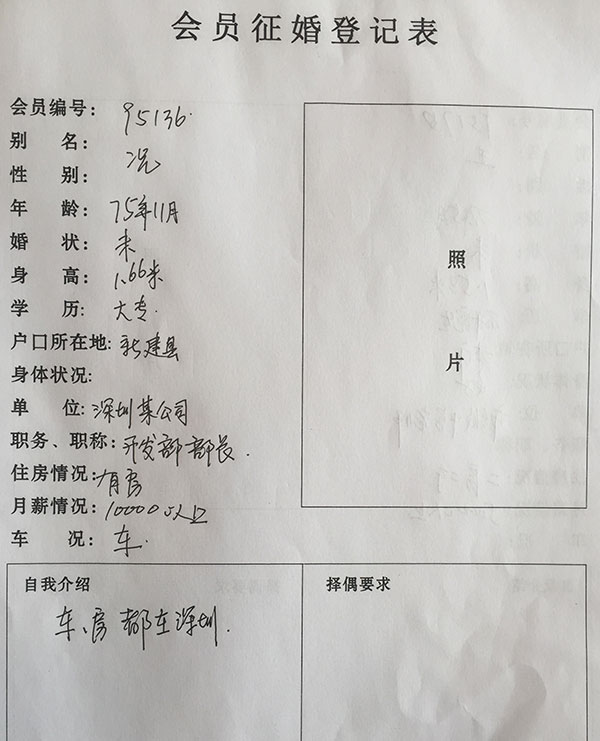 会员征婚登记表
会员编号: 95136
别 名: 况
性 别:
年 龄: 75年11月
婚 状: 未
身 高: 1.66米
学 历: 大专
户口所在地: 新建县
身体状况:
单 位: 深圳某公司
职务、职称: 开发部部长
住房情况: 有房
月薪情况: 10000以上
车 况: 车
照
片
自我介绍
择偶要求
车、房都在深圳.